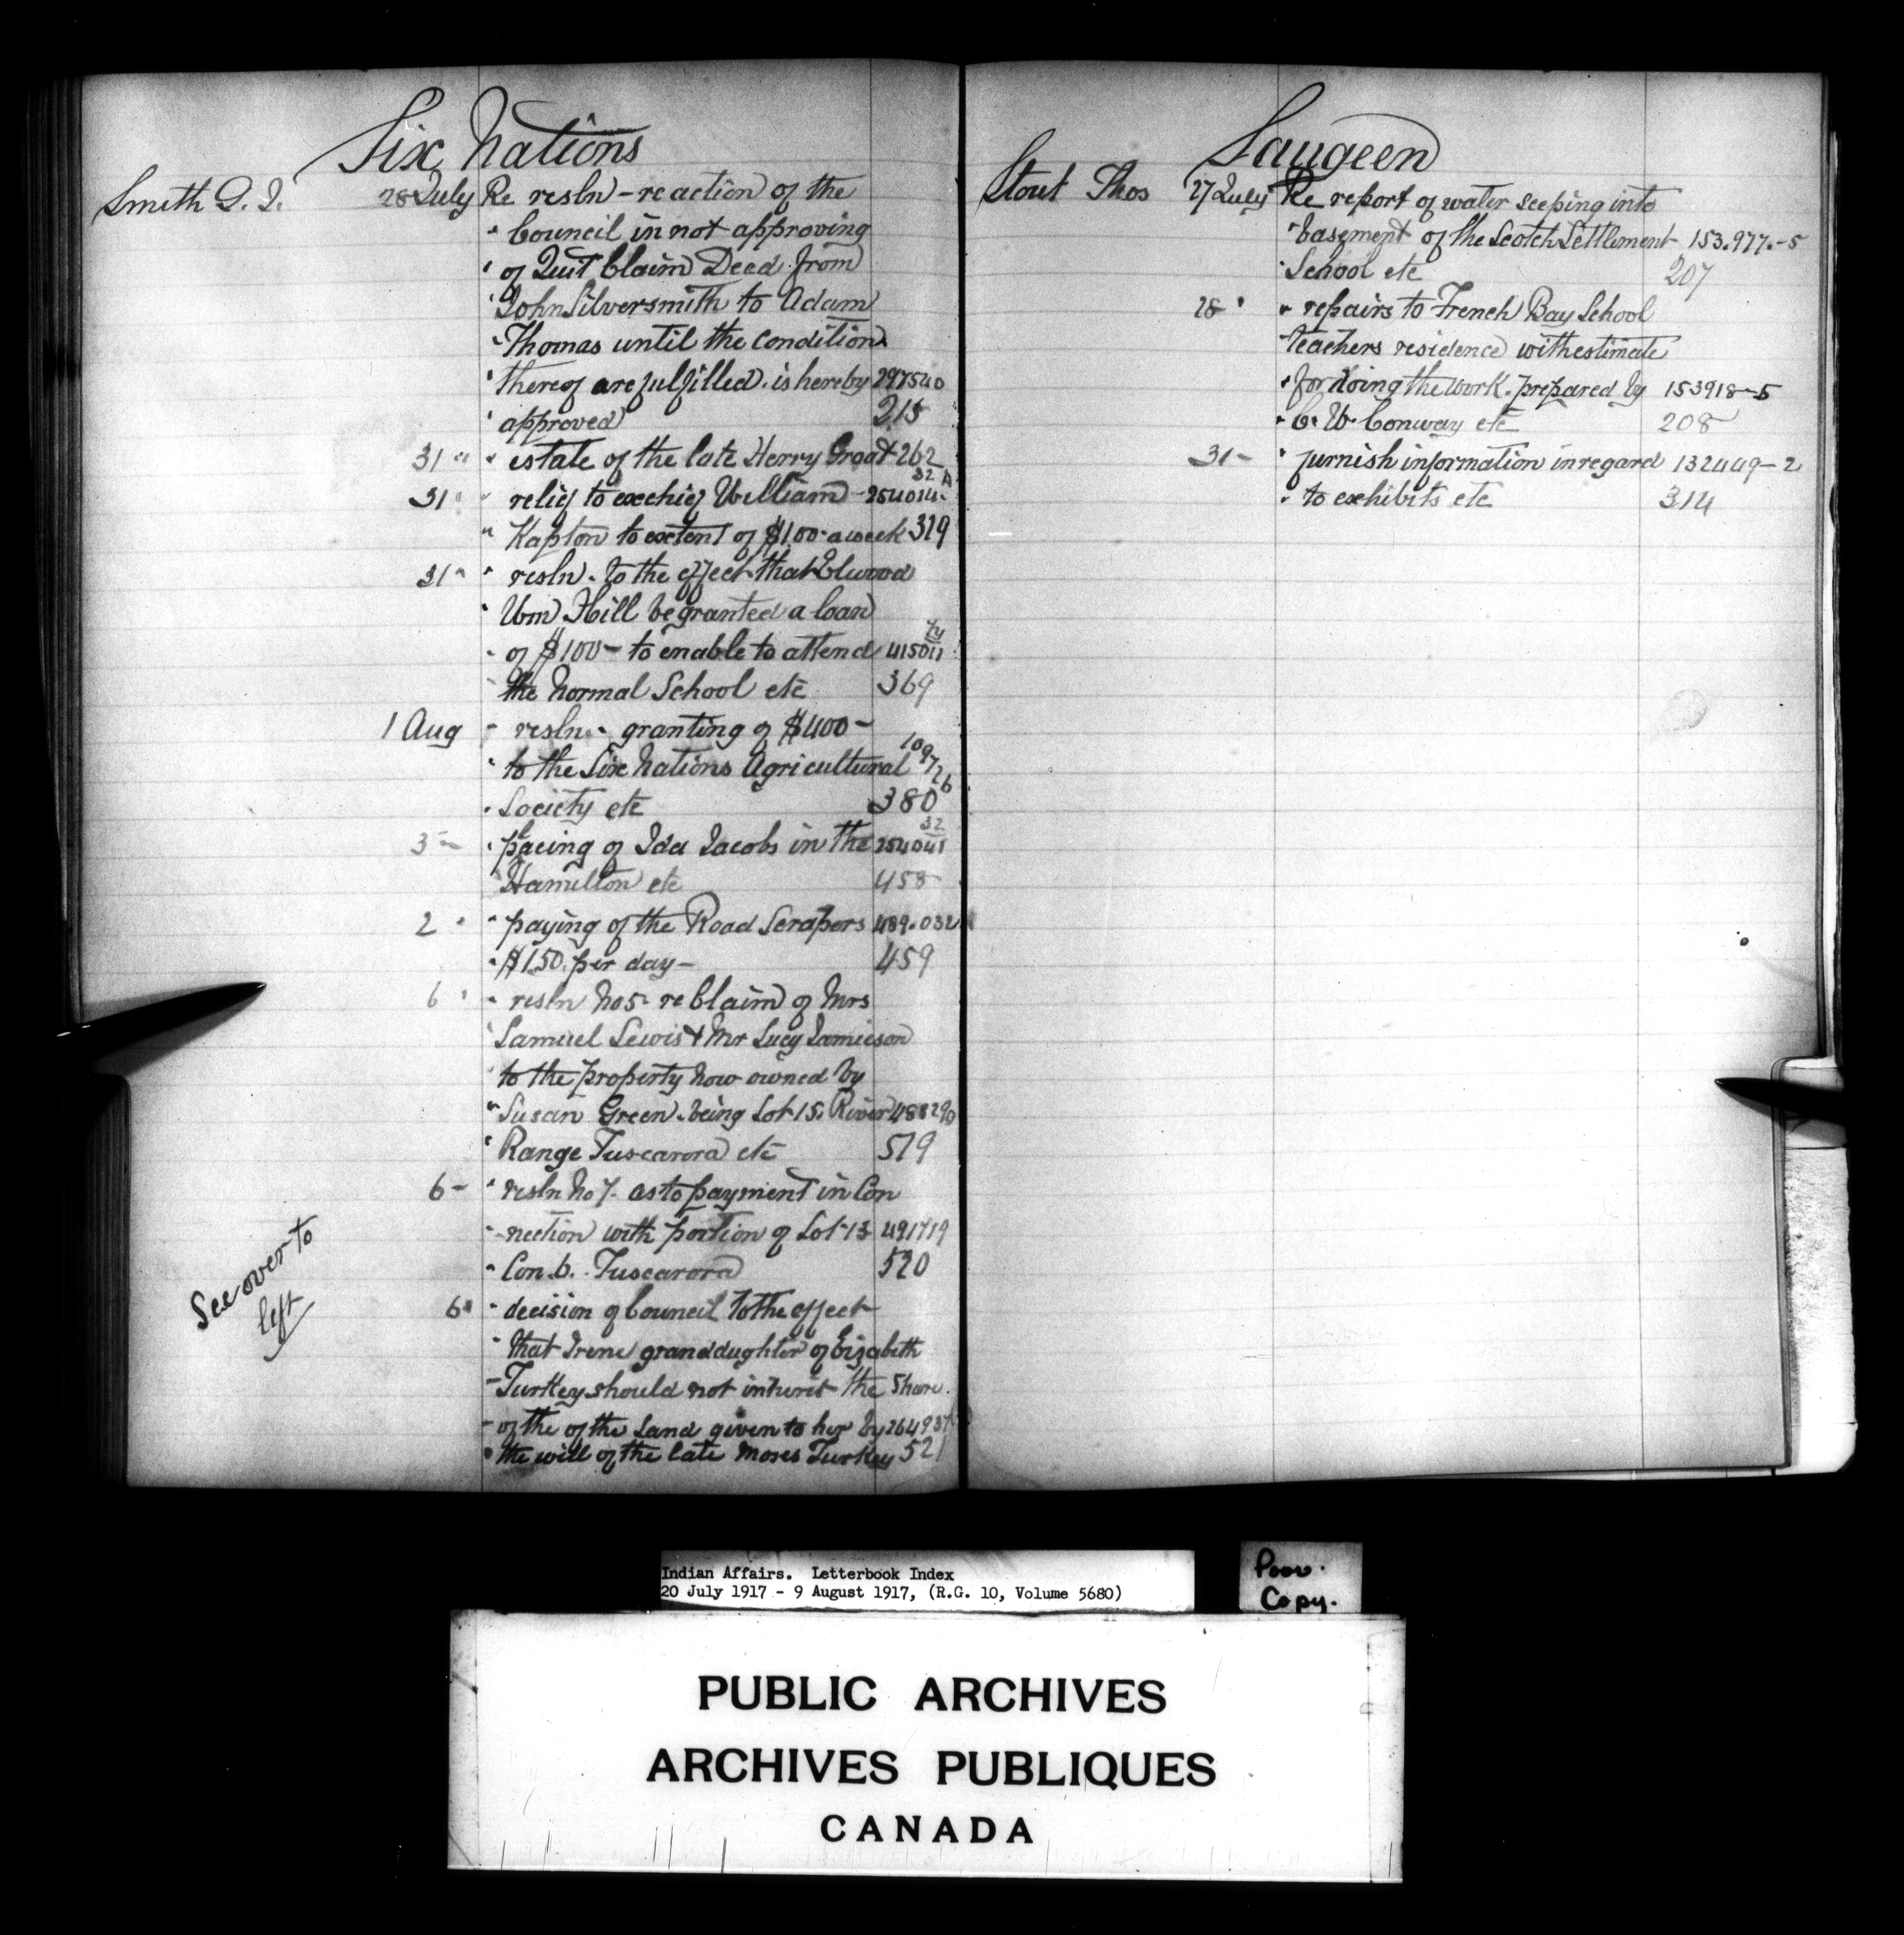 Six Nations
Smith G. J. 28 July Re resln - re action of the
" Council in not approving
" of Quit Claim Deed from
" John Silversmith to Adam
" Thomas until the conditions
" thereof are fulfilled. is hereby 297540
" approved 215
31 " " estate of the late Herry Groat 262
31 " " relief to exchief William - 254014- 32 A
" Kapton to extent of $1.00 a week 319
31 " " resln. to the effect that Elwood
" Wm Hill be granted a loan
" of $100 - to enable to attend 415011
" the Normal School etc 369
1 Aug " resln. granting of $400 -
" to the Six Nations Agricultural 109726
" Society etc 380
3 " " placing of Ida Jacobs in the 254041 32
" Hamilton etc 458
2 " " paying of the Road Scrapers 489.032
" $1.50. per day - 459
6 " " resln No 5 - re Claim of Mrs
" Samuel Lewis & Mr Lucy Jamieson
" to the property now owned by
" Susan Green. being Lot 15. River 488290
" Range Tuscarora etc 519
6 - " resln No 7. as to payment in Con
" nection with portion of Lot 13 491719
" Con. 6. Tuscarora 520
6 " " decision of Council to the effect
" that Irene granddughter of Eizabeth
" Turkey should not inherit the Share.
" of the of the land given to her by 264937
" the will of the late Moses Turkey 521
See over to
left
Saugeen
Stout Thos 27 July Re report of water seeping into
" basement of the Scotch Settlement 153.977.-5
" School etc 207
28 " " repairs to French Bay School
" teachers residence with estimate
" for doing the work. prepared by 153918-5
" C. W. Conway etc 208
31 - " furnish information in regard 132449-2
" to exhibits etc 314
Indian Affairs. Letterbook Index
20 July 1917 - 9 August 1917, (R.G. 10, Volume 5680)
Poor.
Copy.
PUBLIC ARCHIVES
ARCHIVES PUBLIQUES
CANADA